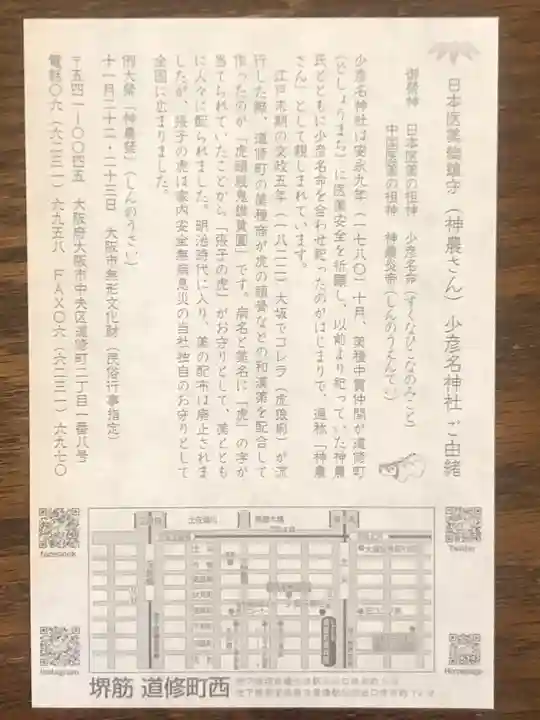 日本医薬総鎮守（神農さん）少彦名神社ご由緒
御祭神　日本医薬の祖神　少彦名命（すくなひこなのみこと）
中国医薬の祖神　神農炎帝（しんのうえんてい）
少彦名神社は安永九年（一七八〇）十月、薬種中買仲間が道修町
（どしょうまち）に医薬安全を祈願し、以前より祀っていた神農
氏とともに少彦名命を合わせ祀ったのがはじまりで、通称「神農
さん」として親しまれています。
江戸末期の文政五年（一八二二）大坂でコレラ（虎狼痢）が流
行した際、道修町の薬種商が虎の頭骨などの和漢薬を配合して
作ったのが「虎頭殺鬼雄黄圓」です。病名と薬名に「虎」の字が
当てられていたことから「張子の虎」がお守りとして、薬ととも
に人々に配られました。明治時代に入り、薬の配布は廃止されま
したが、張子の虎は家内安全無病息災の当社独自のお守りとして
全国に広まりました。
例大祭「神農祭」（しんのうさい）
十一月二十二・二十三日　大阪市無形文化財（民俗行事指定）
〒五四一ー〇〇四五　大阪府大阪市中央区道修町二丁目一番八号
電話〇六（六二三一）六九五八　FAX〇六（六二三一）六九七〇
facebook
Twitter
Instagram
Homepage
土佐堀川
堺筋 道修町西